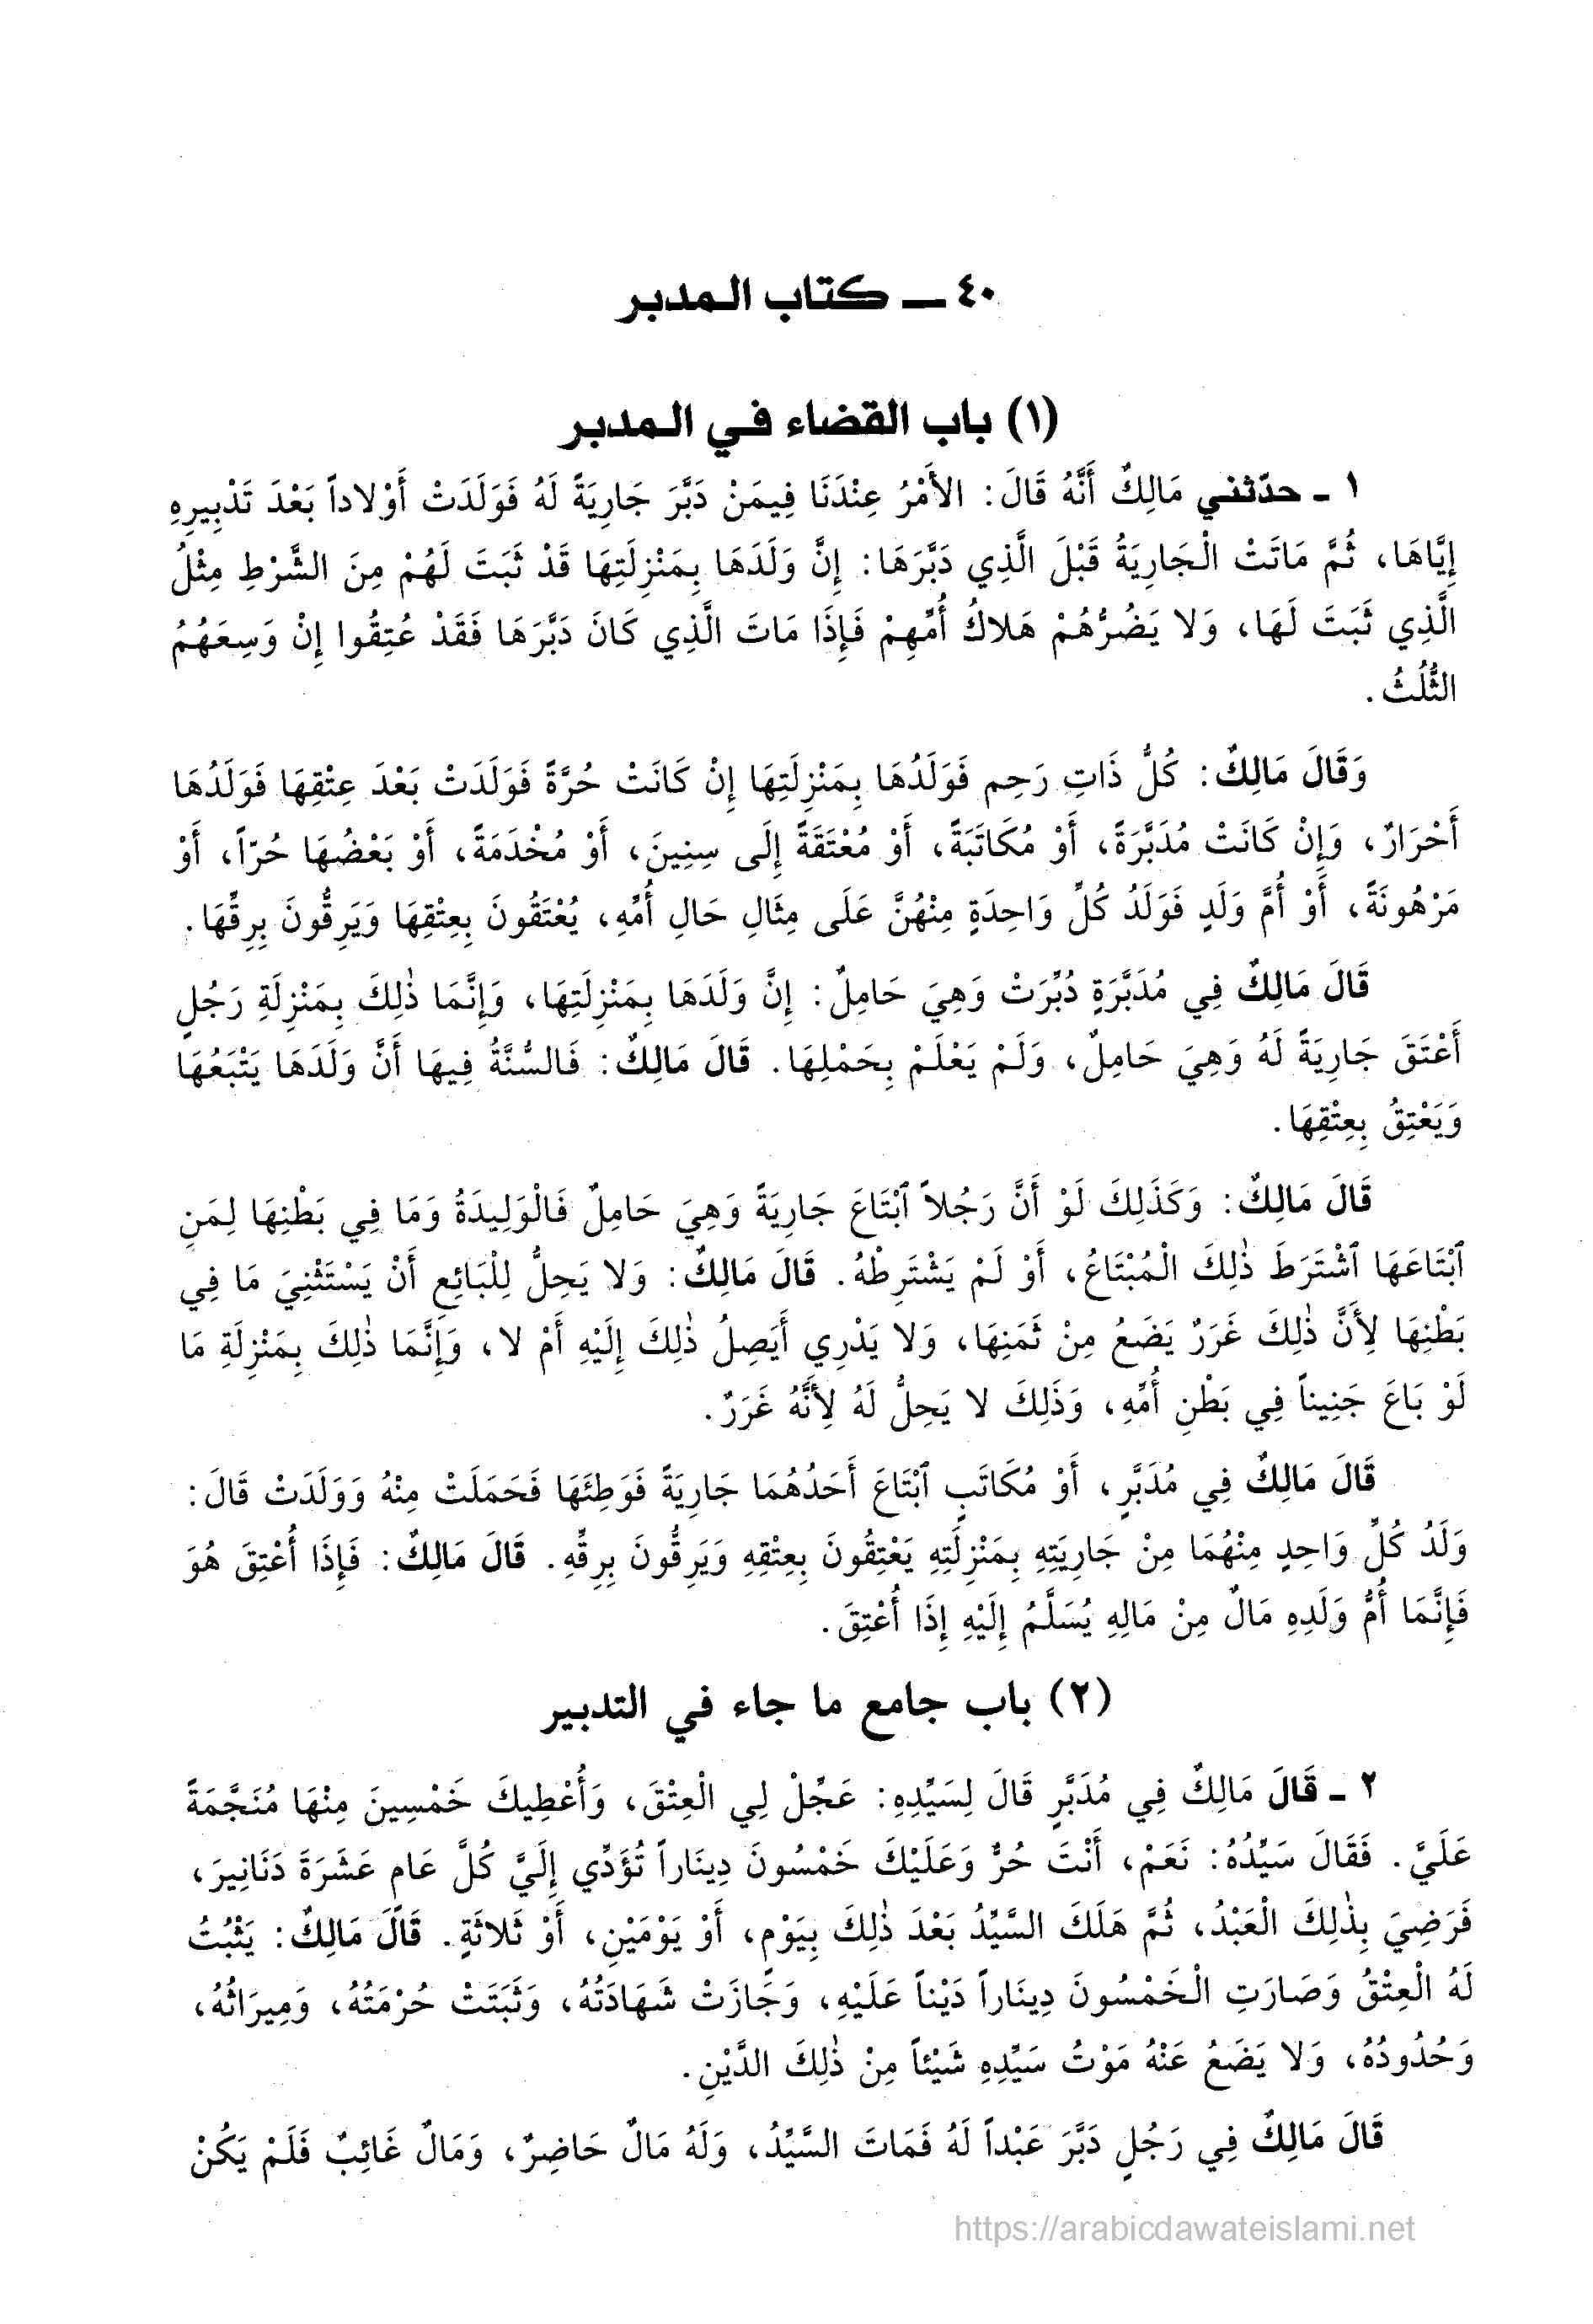 ٤٠ ـ كتاب المدبر
(١) باب القضاء في المدبر
١ ـ حدّثني مَالِكٌ أَنَّهُ قَالَ: الأَمْرُ عِنْدَنَا فِيمَنْ دَبَّرَ جَارِيَةً لَهُ فَوَلَدَتْ أَوْلاداً بَعْدَ تَدْبِيرِهِ
إِيَّاهَا، ثُمَّ مَاتَتْ الْجَارِيَةُ قَبْلَ الَّذِي دَبَّرَهَا: إِنَّ وَلَدَهَا بِمَنْزِلَتِهَا قَدْ ثَبَتَ لَهُمْ مِنَ الشَّرْطِ مِثْلُ
الَّذِي ثَبَتَ لَهَا، وَلا يَضُرُّهُمْ هَلاكُ أُمِّهِمْ فَإِذَا مَاتَ الَّذِي كَانَ دَبَّرَهَا فَقَدْ عُتِقُوا إِنْ وَسِعَهُمُ
الثُّلُثُ.
وَقَالَ مَالِكٌ: كُلُّ ذَاتِ رَحِمٍ فَوَلَدُهَا بِمَنْزِلَتِهَا إِنْ كَانَتْ حُرَّةً فَوَلَدَتْ بَعْدَ عِتْقِهَا فَوَلَدُهَا
أَحْرَارٌ، وَإِنْ كَانَتْ مُدَبَّرَةً، أَوْ مُكَاتَبَةً، أَوْ مُعْتَقَةً إِلَى سِنِينَ، أَوْ مُخْدَمَةً، أَوْ بَعْضُهَا حُرّاً، أَوْ
مَرْهُونَةً، أَوْ أُمَّ وَلَدٍ فَوَلَدُ كُلِّ وَاحِدَةٍ مِنْهُنَّ عَلَى مِثَالِ حَالِ أُمِّهِ، يُعْتَقُونَ بِعِتْقِهَا وَيَرِقُّونَ بِرِقِّهَا.
قَالَ مَالِكٌ فِي مُدَبَّرَةٍ دُبِّرَتْ وَهِيَ حَامِلٌ: إِنَّ وَلَدَهَا بِمَنْزِلَتِهَا، وَإِنَّمَا ذٰلِكَ بِمَنْزِلَةِ رَجُلٍ
أَعْتَقَ جَارِيَةً لَهُ وَهِيَ حَامِلٌ، وَلَمْ يَعْلَمْ بِحَمْلِهَا. قَالَ مَالِكٌ: فَالسُّنَّةُ فِيهَا أَنَّ وَلَدَهَا يَتْبَعُهَا
وَيَعْتِقُ بِعِتْقِهَا.
قَالَ مَالِكٌ: وَكَذَلِكَ لَوْ أَنَّ رَجُلاً ٱبْتَاعَ جَارِيَةً وَهِيَ حَامِلٌ فَالْوَلِيدَةُ وَمَا فِي بَطْنِهَا لِمَنِ
ٱبْتَاعَهَا ٱشْتَرَطَ ذٰلِكَ الْمُبْتَاعُ، أَوْ لَمْ يَشْتَرِطْهُ. قَالَ مَالِكٌ: وَلا يَحِلُّ لِلْبَائِعِ أَنْ يَسْتَثْنِيَ مَا فِي
بَطْنِهَا لِأَنَّ ذٰلِكَ غَرَرٌ يَضَعُ مِنْ ثَمَنِهَا، وَلا يَدْرِي أَيَصِلُ ذٰلِكَ إِلَيْهِ أَمْ لا، وَإِنَّمَا ذٰلِكَ بِمَنْزِلَةِ مَا
لَوْ بَاعَ جَنِيناً فِي بَطْنِ أُمِّهِ، وَذَلِكَ لا يَحِلُّ لَهُ لِأَنَّهُ غَرَرٌ.
قَالَ مَالِكٌ فِي مُدَبَّرٍ، أَوْ مُكَاتَبٍ ٱبْتَاعَ أَحَدُهُمَا جَارِيَةً فَوَطِئَهَا فَحَمَلَتْ مِنْهُ وَوَلَدَتْ قَالَ:
وَلَدُ كُلِّ وَاحِدٍ مِنْهُمَا مِنْ جَارِيَتِهِ بِمَنْزِلَتِهِ يَعْتِقُونَ بِعِتْقِهِ وَيَرِقُّونَ بِرِقِّهِ. قَالَ مَالِكٌ: فَإِذَا أُعْتِقَ هُوَ
فَإِنَّمَا أُمُّ وَلَدِهِ مَالٌ مِنْ مَالِهِ يُسَلَّمُ إِلَيْهِ إِذَا أُعْتِقَ.
(٢) باب جامع ما جاء في التدبير
٢ ـ قَالَ مَالِكٌ فِي مُدَبَّرٍ قَالَ لِسَيِّدِهِ: عَجِّلْ لِي الْعِتْقَ، وَأُعْطِيكَ خَمْسِينَ مِنْهَا مُنَجَّمَةً
عَلَيَّ. فَقَالَ سَيِّدُهُ: نَعَمْ، أَنْتَ حُرٌّ وَعَلَيْكَ خَمْسُونَ دِينَاراً تُؤَدِّي إِلَيَّ كُلَّ عَامٍ عَشَرَةَ دَنَانِيرَ،
فَرَضِيَ بِذٰلِكَ الْعَبْدُ، ثُمَّ هَلَكَ السَّيِّدُ بَعْدَ ذٰلِكَ بِيَوْمٍ، أَوْ يَوْمَيْنِ، أَوْ ثَلاثَةٍ. قَالَ مَالِكٌ: يَثْبُتُ
لَهُ الْعِتْقُ وَصَارَتِ الْخَمْسُونَ دِينَاراً دَيْناً عَلَيْهِ، وَجَازَتْ شَهَادَتُهُ، وَثَبَتَتْ حُرْمَتُهُ، وَمِيرَاثُهُ،
وَحُدُودُهُ، وَلا يَضَعُ عَنْهُ مَوْتُ سَيِّدِهِ شَيْئاً مِنْ ذٰلِكَ الدَّيْنِ.
قَالَ مَالِكٌ فِي رَجُلٍ دَبَّرَ عَبْداً لَهُ فَمَاتَ السَّيِّدُ، وَلَهُ مَالٌ حَاضِرٌ، وَمَالٌ غَائِبٌ فَلَمْ يَكُنْ
https://arabicdawateislami.net